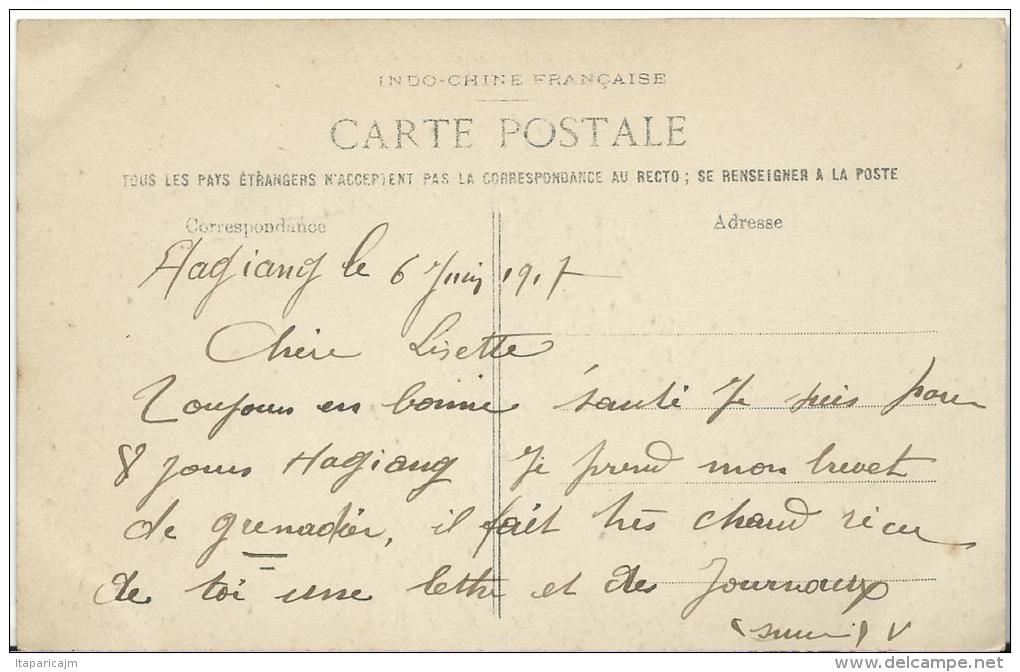 INDO-CHINE FRANÇAISE
CARTE POSTALE
TOUS LES PAYS ÉTRANGERS N'ACCEPTENT PAS LA CORRESPONDANCE AU RECTO ; SE RENSEIGNER A LA POSTE
Correspondance
Adresse
Hagiang le 6 Juin 1917
Chère Lisette
Toujours en bonne santé Je suis pour
8 jours Hagiang Je prend mon brevet
de grenadier, il fait très chaud reçu
de toi une lettre et des Journaux
ltaparicajm
www.delcampe.net